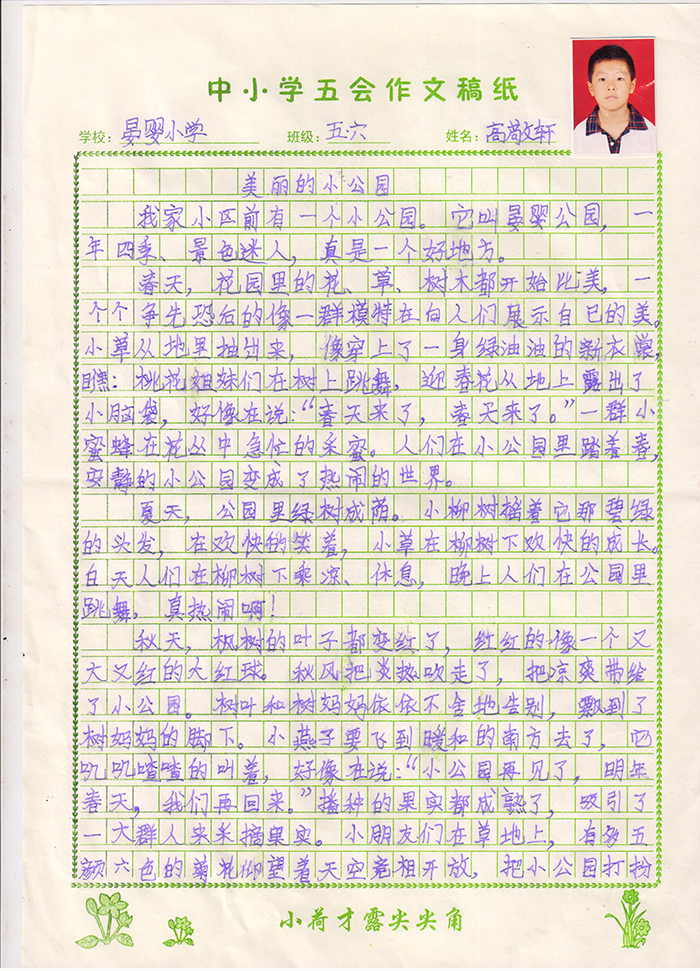 中小学五会作文稿纸
学校：晏婴小学 班级：五.六 姓名：高敬轩
美丽的小公园
我家小区前有一个小公园。它叫晏婴公园，一
年四季、景色迷人，真是一个好地方。
春天，花园里的花、草、树木都开始比美，一
个个争先恐后的像一群模特在向人们展示自已的美。
小草从地里抽出来，像穿上了一身绿油油的新衣裳，
瞧：桃花姐妹们在树上跳舞，迎春花从地上露出了
小脑袋，好像在说：“春天来了，春天来了。”一群小
蜜蜂在花丛中急忙的采蜜。人们在小公园里踏着春，
安静的小公园变成了热闹的世界。
夏天，公园里绿树成荫。小柳树摇着它那碧绿
的头发，在欢快的笑着，小草在柳树下欢快的成长。
白天人们在柳树下乘凉、休息，晚上人们在公园里
跳舞，真热闹啊！
秋天，枫树的叶子都变红了，红红的像一个又
大又红的大红球。秋风把炎热吹走了，把凉爽带给
了小公园。树叶和树妈妈依依不舍地告别，飘到了
树妈妈的脚下。小燕子要飞到暖和的南方去了，它
叽叽喳喳的叫着，好像在说：“小公园再见了，明年
春天，我们再回来。”播种的果实都成熟了，吸引了
一大群人来采摘果实。小朋友们在草地上，有多五
颜六色的菊花仰望着天空竞相开放，把小公园打扮
小荷才露尖尖角